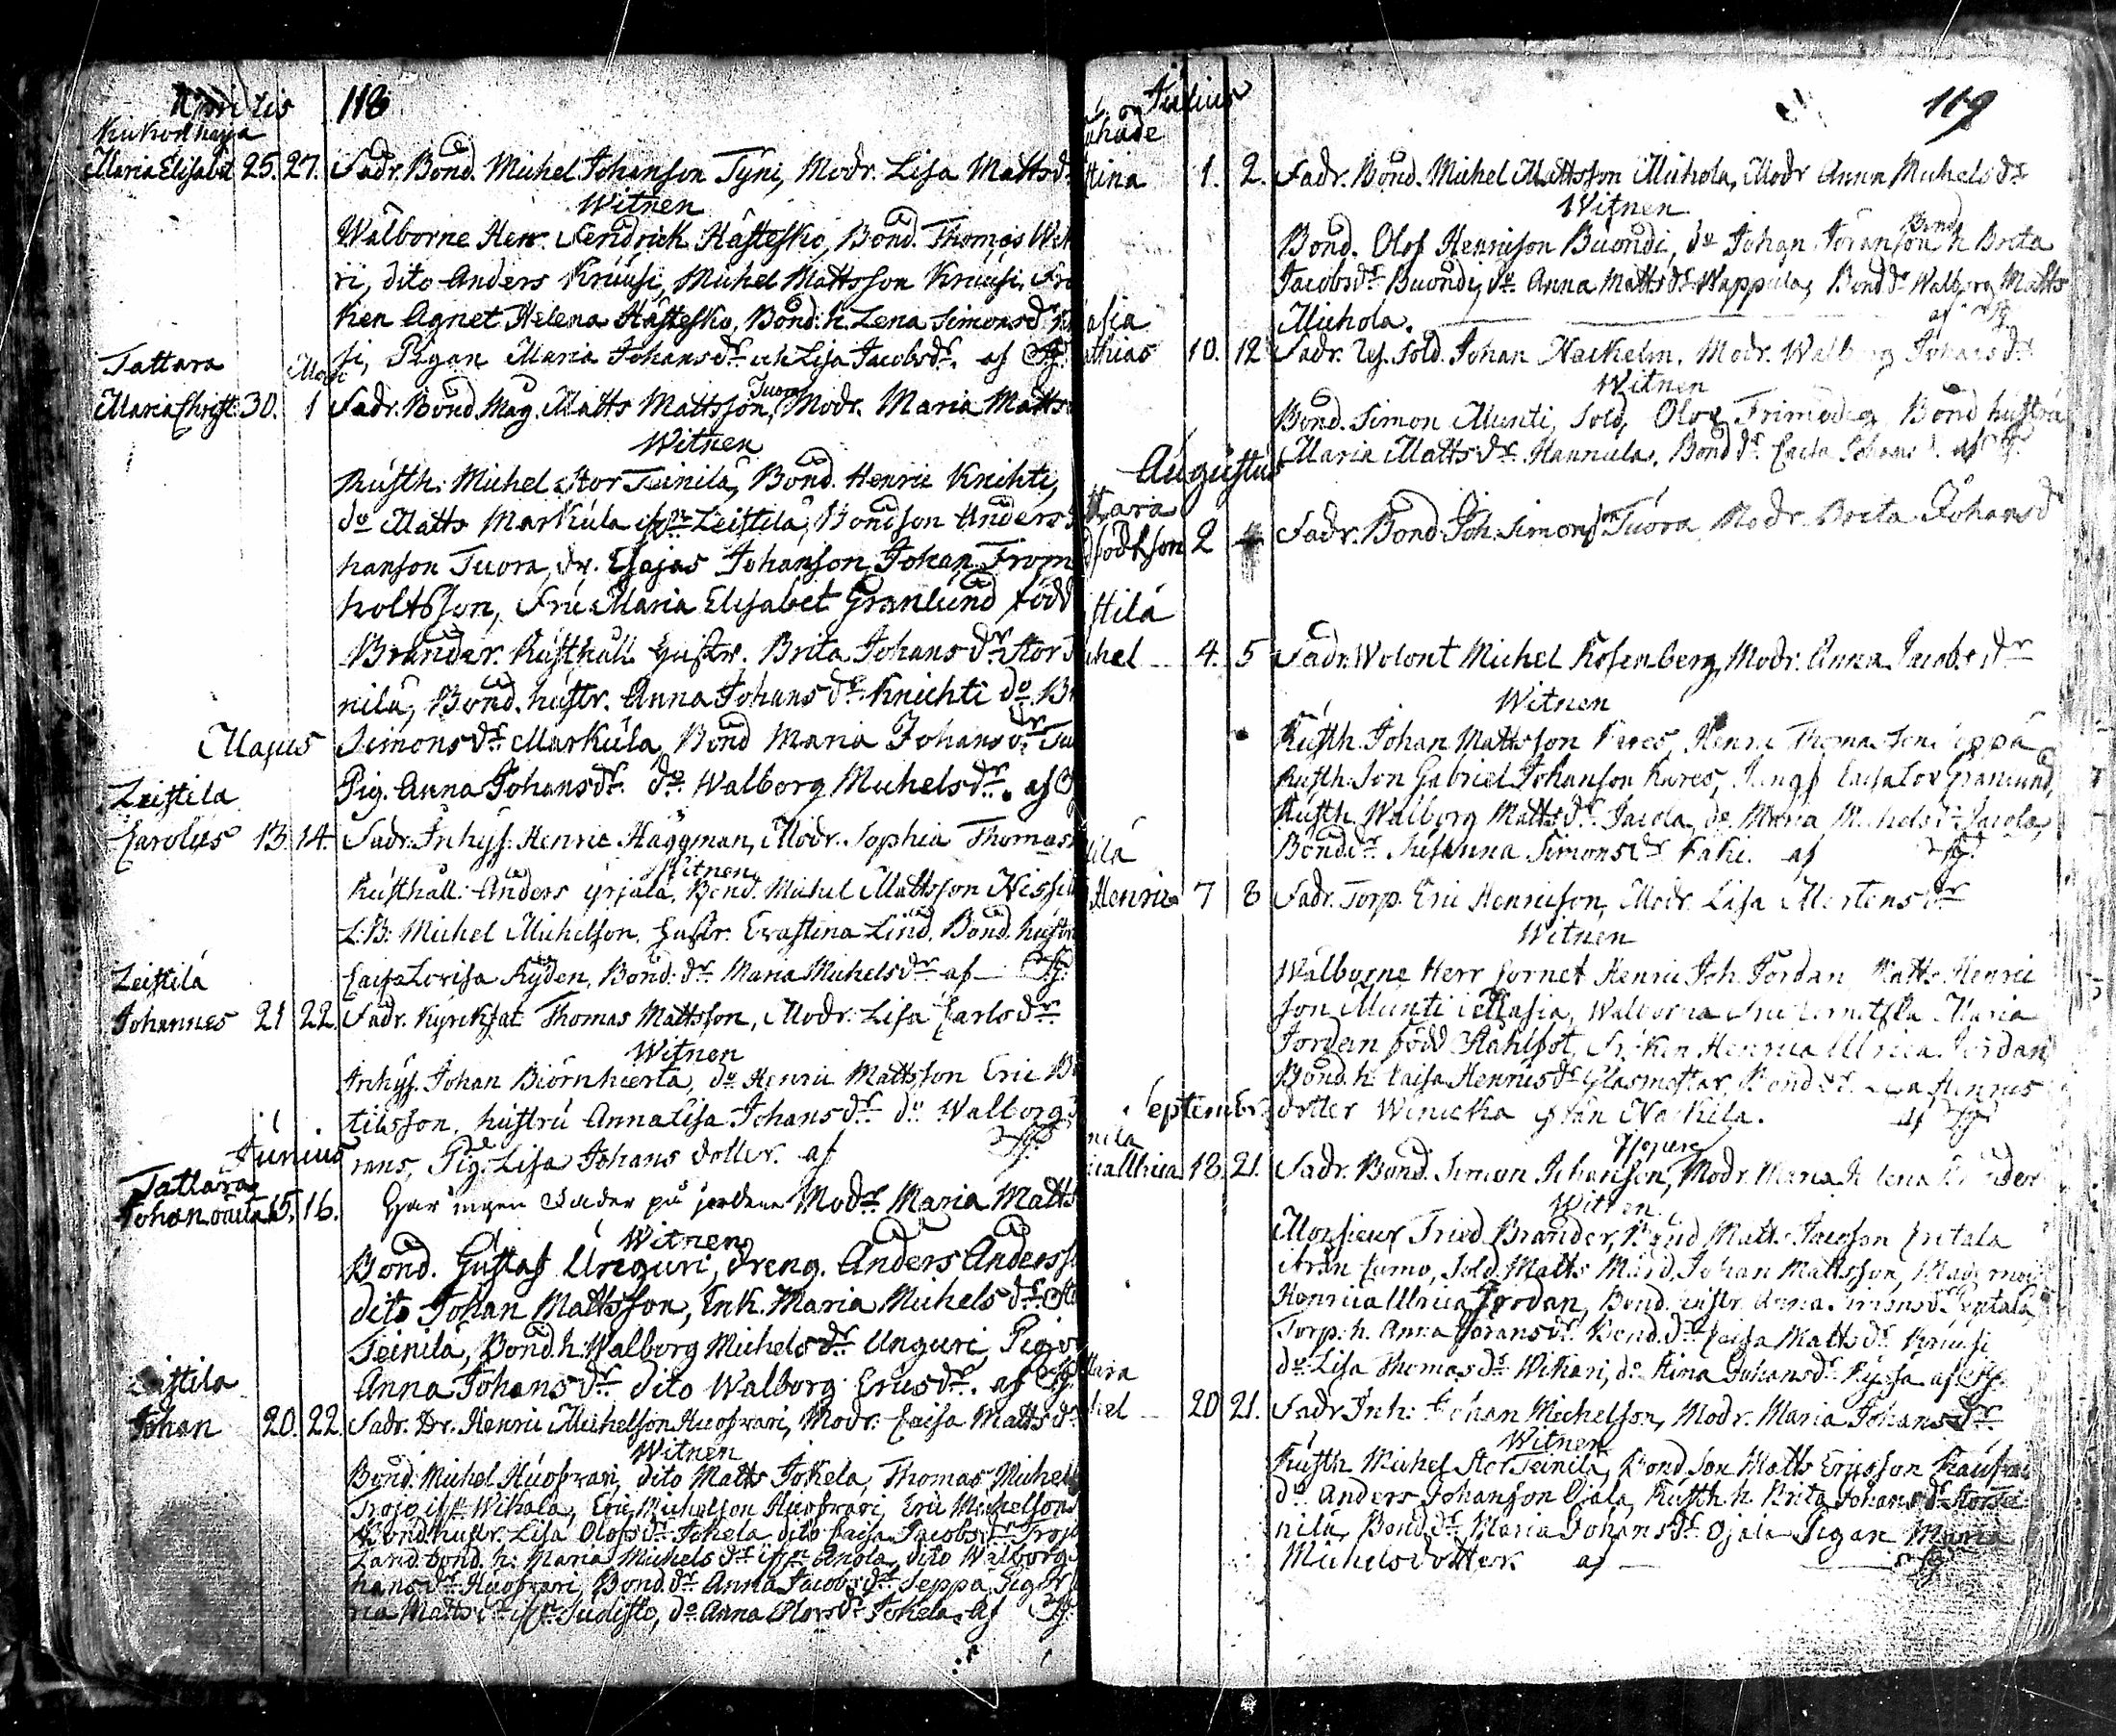 Aprilis 118
Kiukoinhaja
Maria Elisabet 25. 27. Fadr. Bond. Michel Johanson Tÿni, Modr. Lisa Matts dr
Witnen
Wälborne Herr Fendrick Hästesko, Bond. Thomas Wik
ri, dito Anders Kruusi, Michel Mattsson Kruusi, Frö
ken Agnet Helena Hästesko, Bond. h. Lena Simonsdr
si, Pigan Maria Johansdr och Lisa Jacobsdr. af
Tattara Maji
Maria Christ. 30. 1 Fadr. Bond. Mag. Matts Mattsson Tuora, Modr. Maria Matts
Witnen
Rusth. Michel Stor Teinilä, Bond. Henric Knichti,
do Matts Markula if. Leistilä, Bondson Anders
hanson Tuora, dr. Esajas Johanson, Johan From
holtsson, Fru Maria Elisabet Granlund född
Brander. Rusthåll. Hustr. Brita Johansdr Stor
nilä, Bond. hustr. Anna Johansdr Knichti do
Majus Simonsdr Markula, Bond Maria Johansdr
Pig. Anna Johansdr. do Walborg Michelsdr. af
Leistila
Carolus 13. 14. Fadr. Inhys. Henric Häggman, Modr. Sophia Thomas
Witnen
Rusthåll. Anders Yrjälä, Bond. Michel Mattsson Nissi
L:B: Michel Michelson. Hustr. Christina Lind. Bond. hustr
Caisa Lovisa Ryden, Bond. dr Maria Michelsdr af
Leistilä
Johannes 21 22. Fadr. Kyrcksat. Thomas Mattsson, Modr. Lisa Carlsdr
Witnen
Inhys. Johan Biörnhierta, do Henric Mattsson Eric
tilsson, hustru Anna Lisa Johansdr do Walborg
Junius rans, Pig. Lisa Johans dotter. af
Tattara
Johan oäkta 15. 16. Har ingen Fader på jordene Modr Maria Matts
Witnen
Bond. Gustaf Unguri, Dreng. Anders Anders
dito Johan Mattsson, Enk. Maria Michelsdr
Teinilä, Bond. h. Walborg Michelsdr Unguri, Pigor
Anna Johansdr dito Walborg Ericsdr. af
Leistila
Johan 20. 22. Fadr. Dr. Henric Michelson Huofvari, Modr. Caisa Mattsdr
Witnen
Bond. Michel Huofvari, dito Matts Jokela, Thomas Michels
Trojo if. Wikala, Eric Michelson Huofvari, Eric Michelson
Bond. hustr. Lisa Olofsdr Jokela, dito Caisa Jacobsdr Trojo
Land. bond. h. Maria Michelsdr if. Anola, dito Walborg
hansdr Huofvari, Bond. dr Anna Jacobsdr Seppä, Pigor
ria Mattsdr if. Suodisto, do Anna Olofsdr Jokela. af
Julius 119
uhade
stina 1. 2. Fadr. Bond. Michel Mattsson Michola, Modr Anna Michelsdr
Witnen
Bond. Olof Henrison Buondi, do Johan Jöranson, Bond h Brita
Jacobsdr Buondi, do Anna Mattsdr Wappula, Bond dr Walborg Matts
Michola. af
asia
athias 10. 12 Fadr. Sold. Johan Nackelin. Modr. Walborg Johansdr
Witnen
Bond. Simon Munti, Sold. Olof Frimodig Bond hustru
Maria Mattsdr Hannula. Bond dr Caisa Johans af
Augustus
ttara
dfödt son 2 Fadr. Bond Joh. Simonson Tuora Modr. Brita Johansd
istilä
ichel 4. 5 Fadr. Wolont Michel Rosenberg, Modr. Anna Jacobsdr
Witnen
Rusth. Johan Mattsson Kares, Henric Thomasson Seppä
Rusth. Son Gabriel Johanson Kares, Jungf Caisa Lov Granlund,
Rusth. Walborg Mattsdr Jacola, do Maria Michelsdr Jacola,
Bonddr Susanna Simonsdr Kaki. af
ilä
Henric 7 8 Fadr. Torp. Eric Henricson, Modr. Lisa Mortensdr
Witnen
Wälborne Herr Cornet Henric Joh. Jordan Matts Henric
son Munti i Masia, Walborna Fru Cornetska Maria
Jordan född Stählfot, Fröken Henrica Ulrica Jordan
Bond. h. Caisa Henricsdr Glasmästar, Henrics
September dotter Winicka från Nackila. af
nila
ica Ulrica 18. 21. Fadr. Bond. Simon Johanson, Modr. Maria Helena
Witnen
Monsieur Fried Brander, Bond Matts Jacobson Pentala
ifrån Cumo, Sold. Matts Mård, Johan Mattsson, Mademois
Henrica Ulrica Jordan, Bond. hustr. Anna Simonsdr Pentala,
Torp. h. Anna Jöransdr Bond. dr Caisa Mattsdr Kruusi
do Lisa Thomasdr Wikari, do Stina Johansdr Kyssä. af
ttara
ichel 20 21. Fadr Inh: Johan Michelson, Modr. Maria Johansdr
Witnen
Rusth Michel Stor Teinilä, Bond. son Matts Ericsson
do Anders Johanson Ojala, Rusth. h. Brita Johansdr Stor Tei
nilä, Bond. dr Maria Johansdr Ojala Pigan Maria
Michelsdotter. af